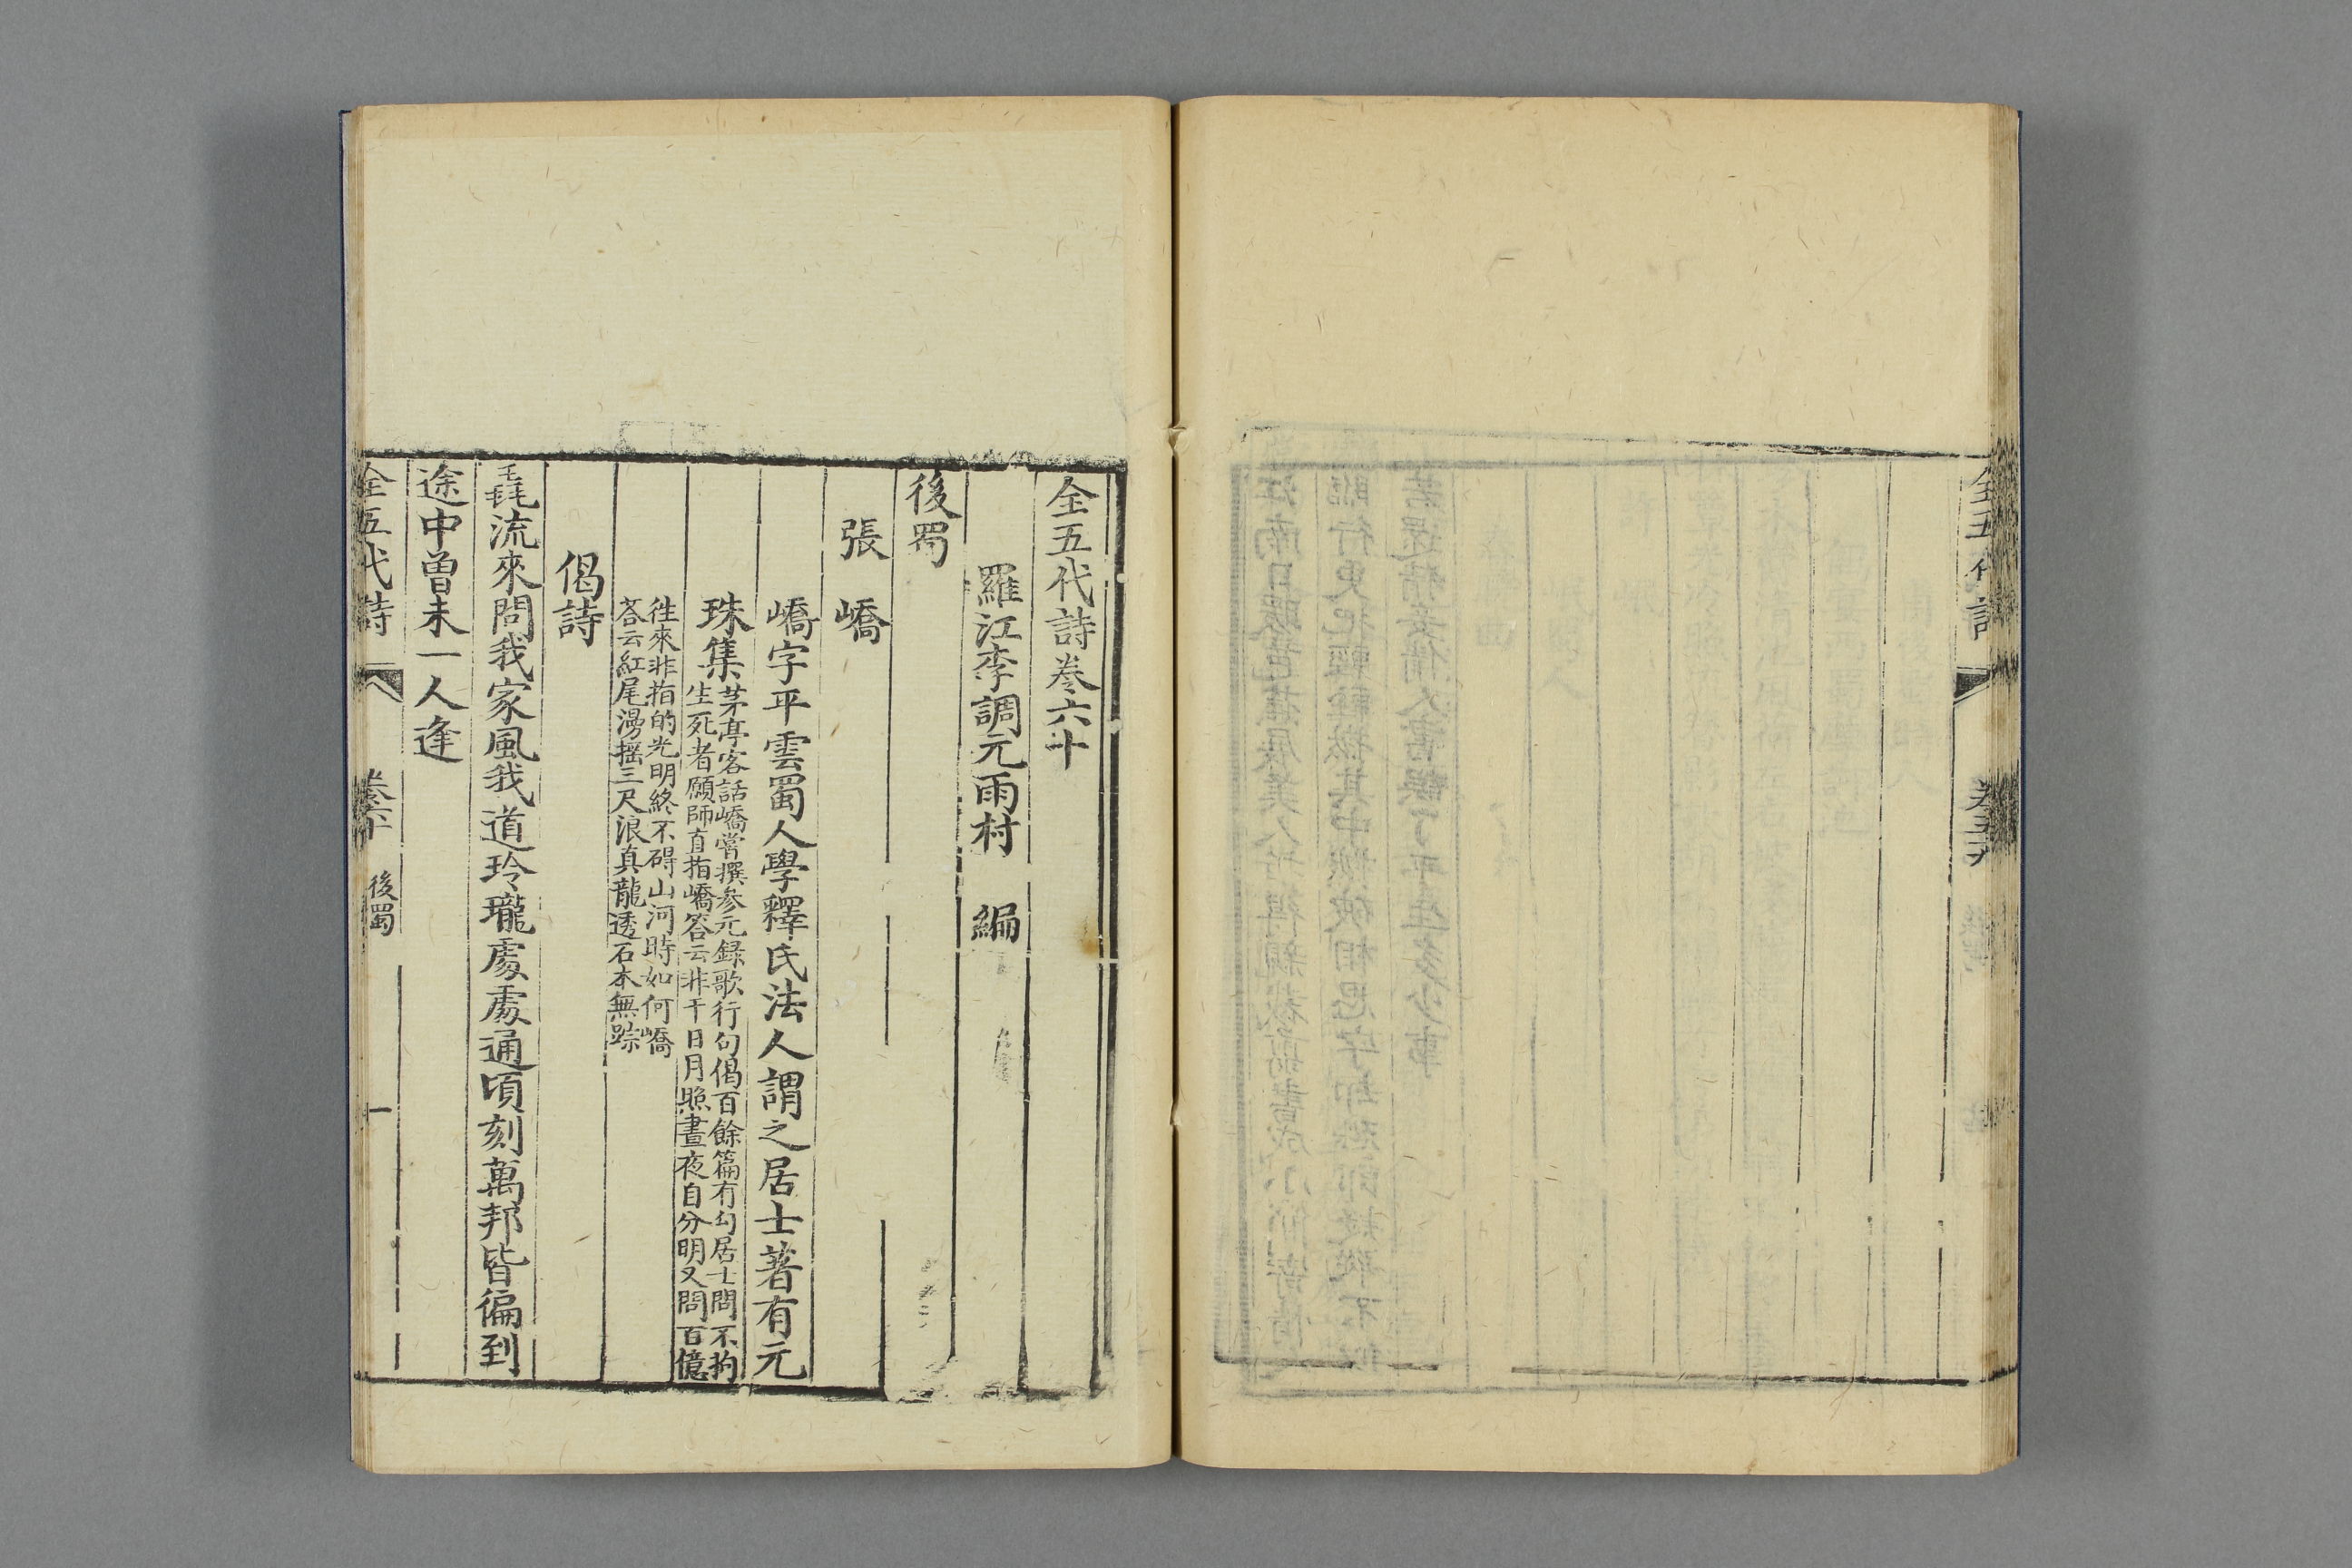 全五代詩
全五代詩卷六十
羅江李調元雨村 編
後蜀
張 嶠
嶠字平雲蜀人學釋氏法人謂之居士著有元
珠集
茅亭客話嶠嘗撰參元録歌行句偈百餘篇有勾居士問不拘
生死者願師直指嶠答云非干日月照晝夜自分明又問百億
往來非指的光明終不碍山河時如何嶠
荅云紅尾漫摇三尺浪真龍透石本無踪
偈詩
流來問我家風我道玲瓏處處通頃刻萬邦皆徧到
途中曾未一人逢
全五代詩 卷六十 後蜀 一